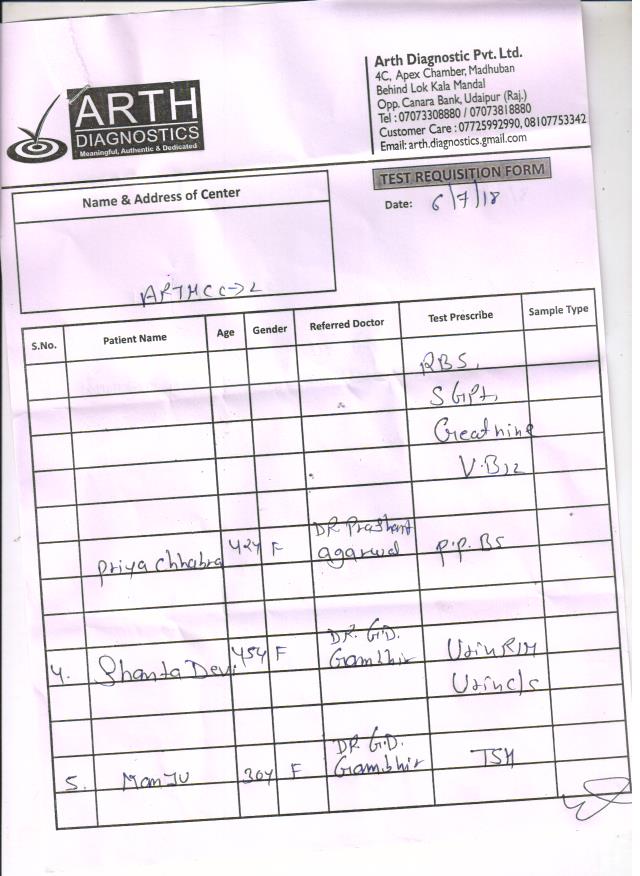 ARTH
DIAGNOSTICS
Meaningful, Authentic & Dedicated
Arth Diagnostic Pvt. Ltd.
4C, Apex Chamber, Madhuban
Behind Lok Kala Mandal
Opp. Canara Bank, Udaipur (Raj.)
Tel : 07073308880 / 07073818880
Customer Care : 07725992990, 08107753342
Email: arth.diagnostics.gmail.com
TEST REQUISITION FORM
Date: 6/7/18
Name & Address of Center
ARTHCC->2
S.No. Patient Name Age Gender Referred Doctor Test Prescribe Sample Type
RBS,
SGPT,
Creatnine
V.B12
Priya Chhabra 42Y F DR Prashant agarwal P.P.BS
4. Shanta Devi 45Y F DR. G.D. Gambhir Urin R/M
Urin C/S
5. Manju 30Y F DR. G.D. Gambhir TSH